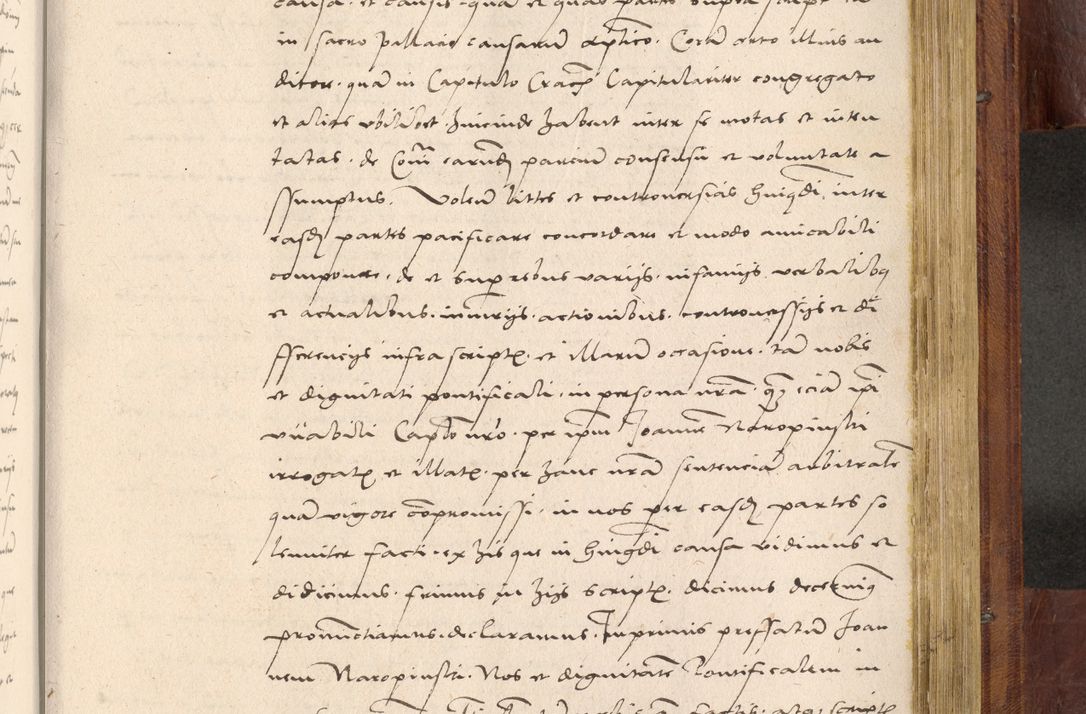 causa et causis quam et quas partes supra script
in sacro pallacio causarum aplico. Coram certo illius au
ditore quam in Capitulo Crac Capitulariter congregato
et alias ubilibet hincinde habent inter se motas et inten
tatas de Comi earund parcium consensu et voluntate a
ssumptus. Volen littes et controversias huiqdi inter
easd partes pacificare concordare et modo amicabili
componere. de et super rebus varijs. infamijs verbalibq
et actualibus. iniurijs. actionibus. controverssijs et di
fferencijs infrascript et illarum occasione. tam nobis
et dignitati pontificali in persona nram qz eciam ipi
vnabili Caplo nro. per ipm Joannem Naropinski
irrogat et illat per hanc nram sentenciam arbitrale
quam vigore compromissi in nos per easd partes so
lenniter facti. ex his que in huiqdi causa vidimus et
didicimus. ferimus in hijs script. dicimus decernimq
pronunctiamus. declaramus. Inprimis preffatum Joan
nem Naropinski. Nos et dignitatem Pontificalem in